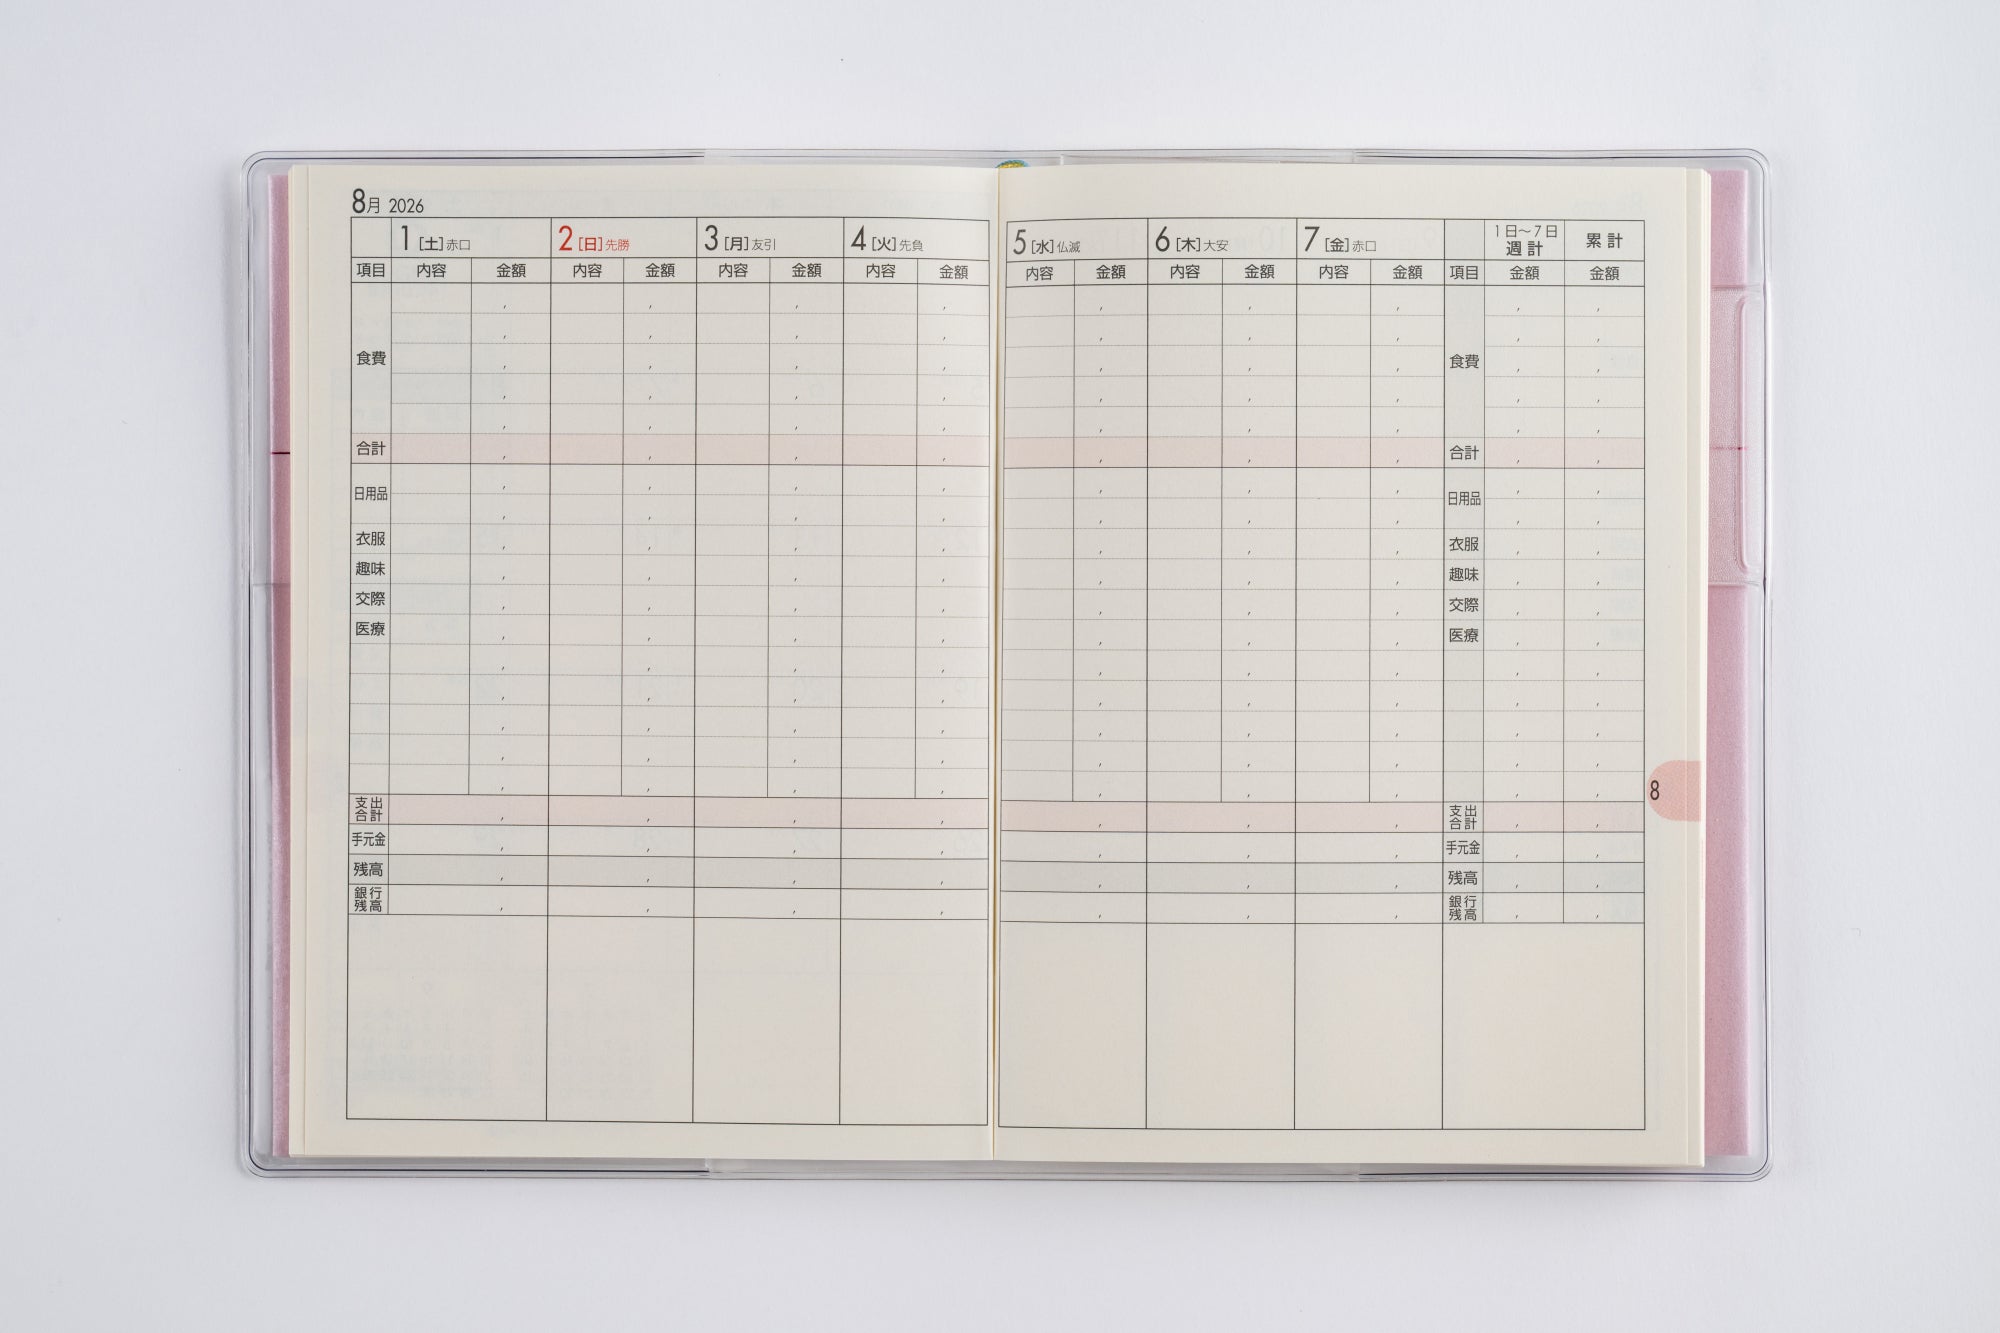 8月 2026
1 [土] 赤口 2 [日] 先勝 3 [月] 友引 4 [火] 先負
項目 内容 金額 内容 金額 内容 金額 内容 金額
食費
合計
日用品
衣服
趣味
交際
医療
支出
合計
手元金
残高
銀行
残高
5 [水] 仏滅 6 [木] 大安 7 [金] 赤口 1日〜7日 週計 累計
内容 金額 内容 金額 内容 金額 項目 金額 金額
食費
合計
日用品
衣服
趣味
交際
医療
8
支出
合計
手元金
残高
銀行
残高